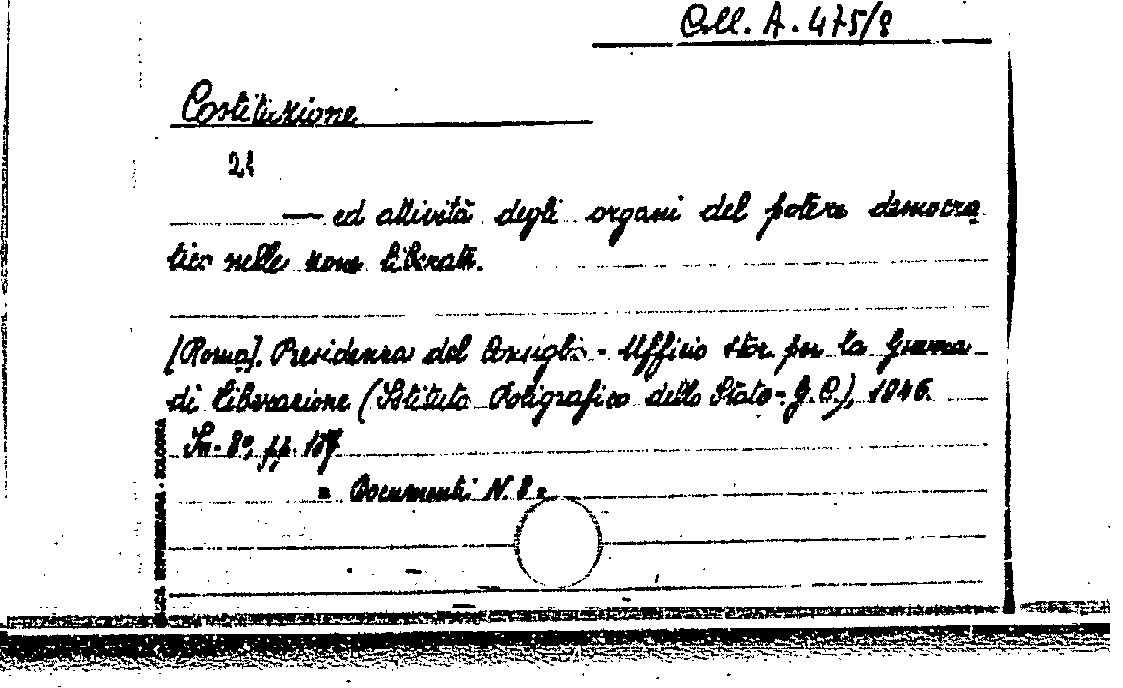 Coll. A. 475/8
Costituzione
21
— ed attività degli organi del potere democra
tico nelle zone liberate.
[Roma]. Presidenza del Consiglio - Ufficio stor. per la Guerra
di liberazione (Istituto Poligrafico dello Stato - G.C.), 1946.
In-8°, pp. 107
= Documenti N. 8 =
BOLOGNA